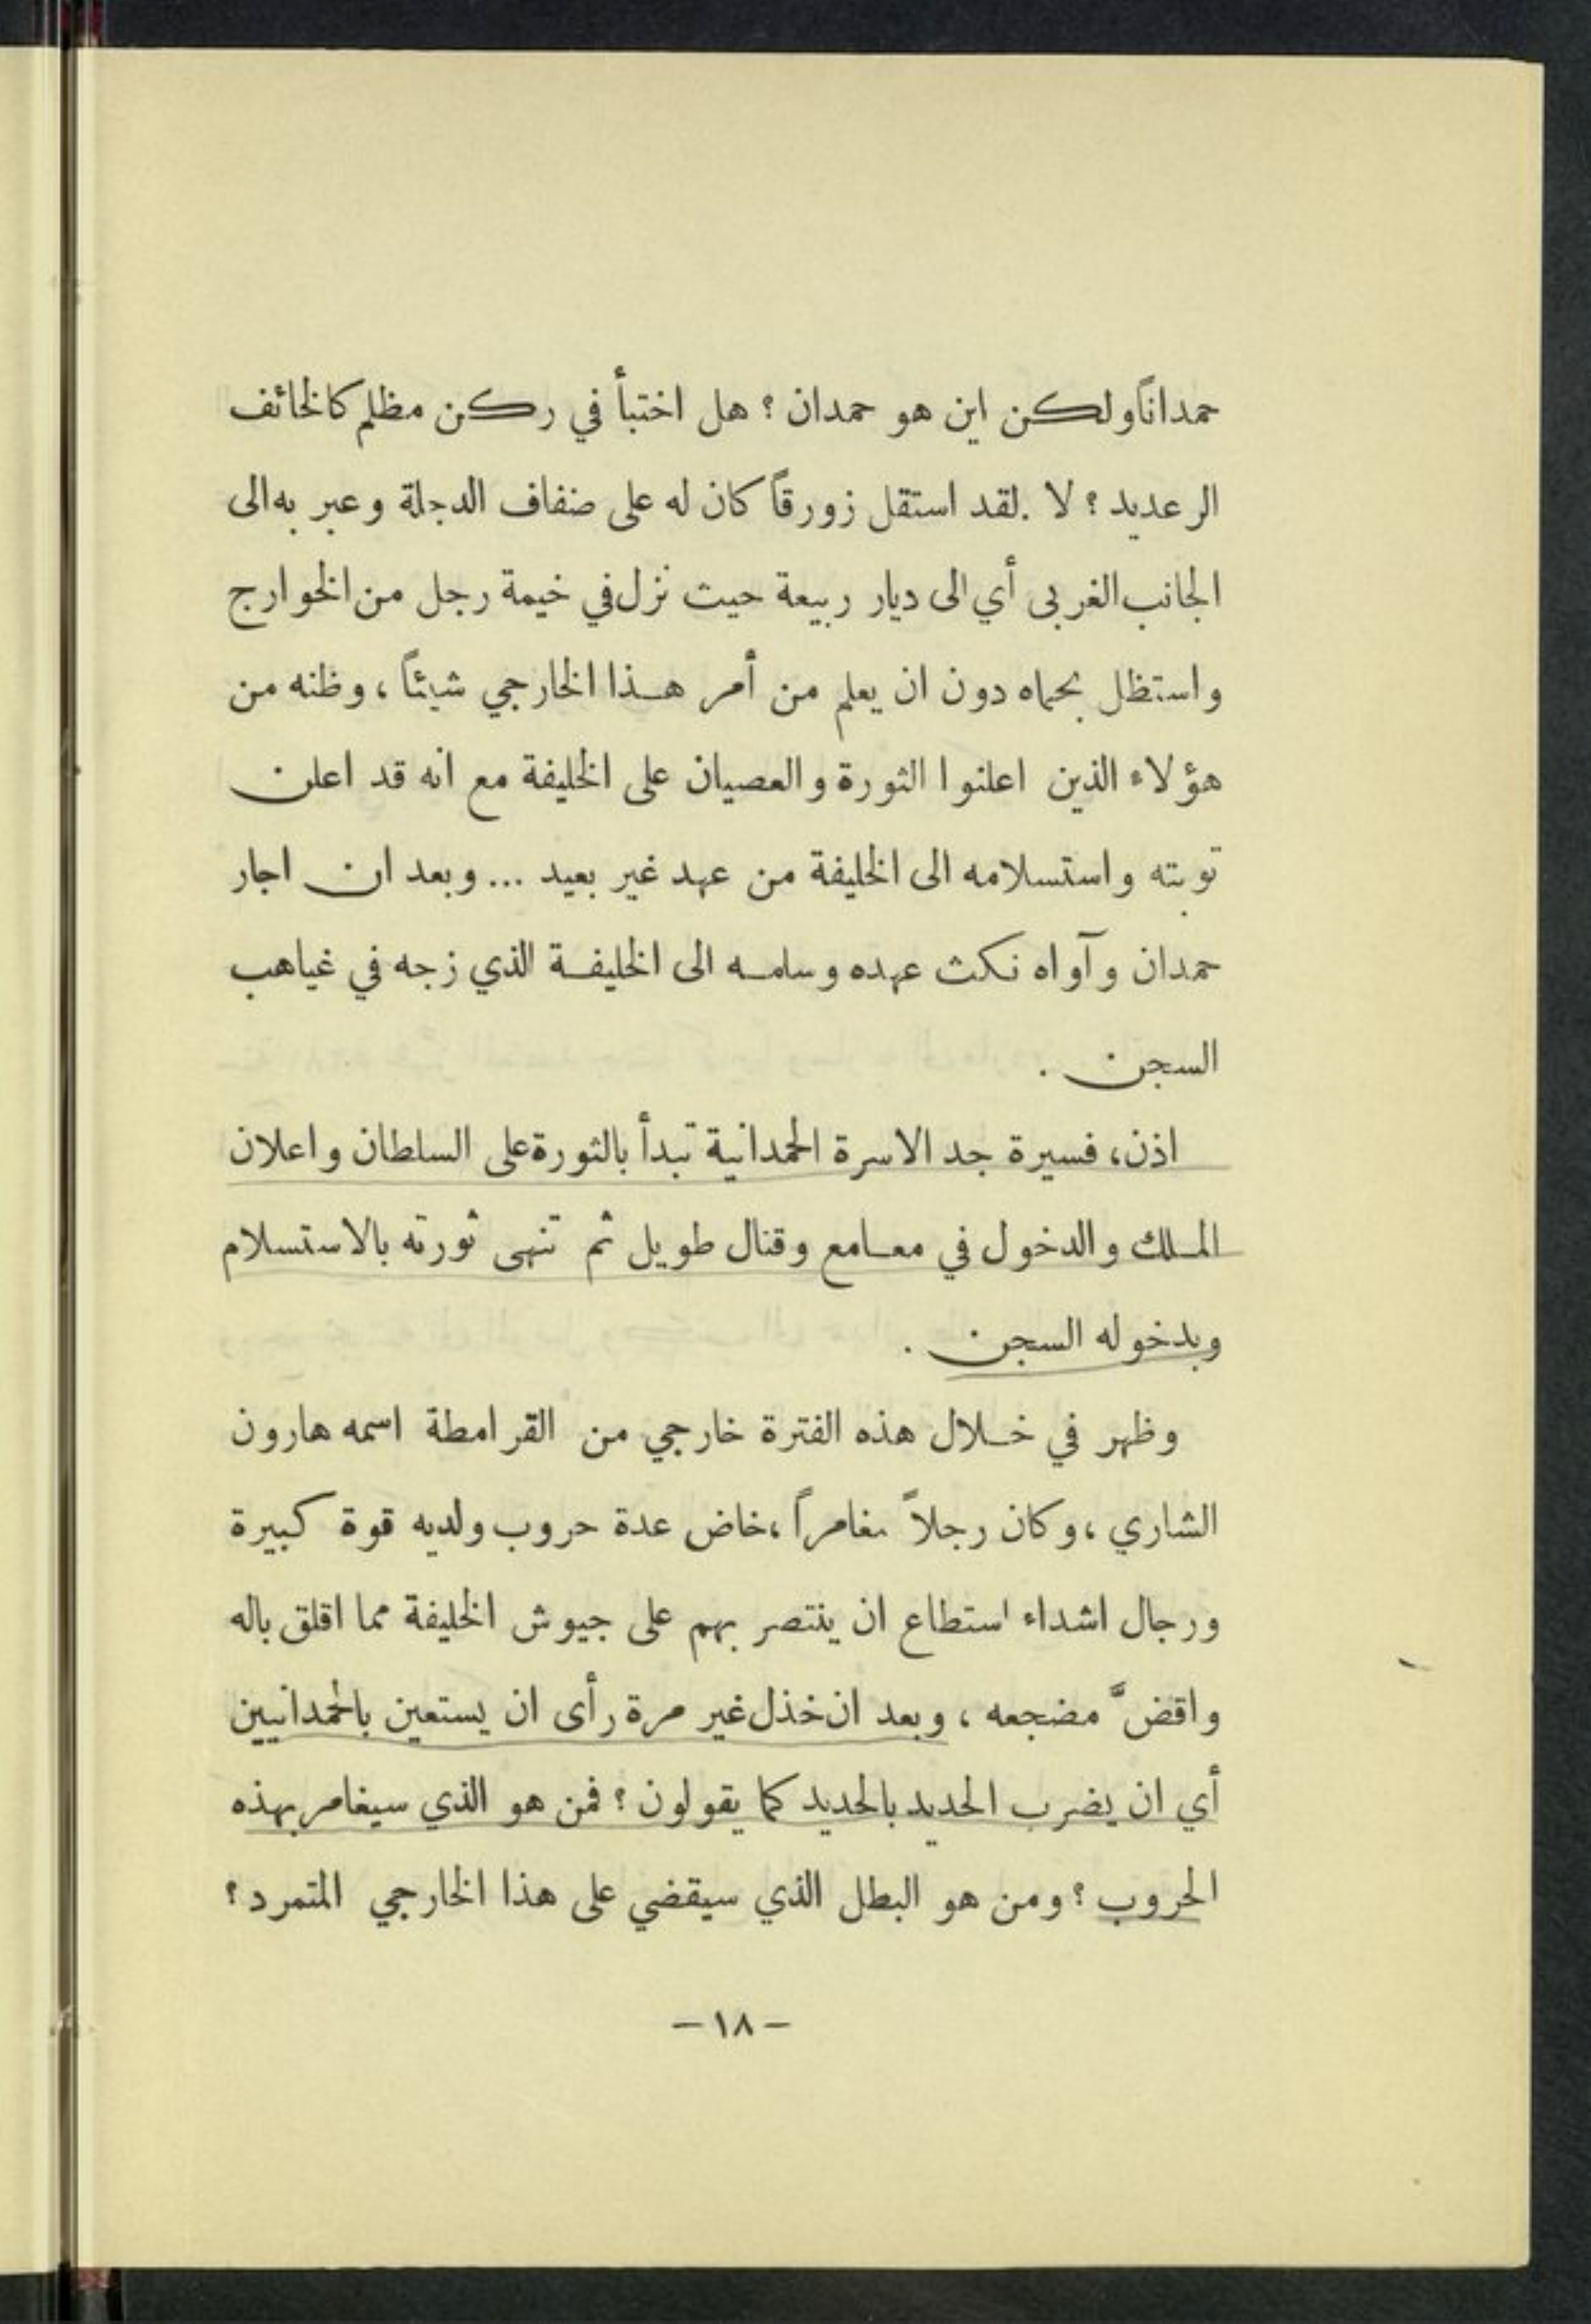 حمداناً ولكن اين هو حمدان ؟ هل اختبأ في ركن مظلم كالخائف
الرعديد ؟ لا .لقد استقل زورقاً كان له على ضفاف الدجلة وعبر به الى
الجانب الغربى أي الى ديار ربيعة حيث نزل في خيمة رجل من الخوارج
واستظل بحماه دون ان يعلم من أمر هـذا الخارجي شيئاً ، وظنه من
هؤلاء الذين اعلنوا الثورة والعصيان على الخليفة مع انه قد اعلن
توبته واستسلامه الى الخليفة من عهد غير بعيد ... وبعد ان اجار
حمدان وآواه نكث عهده وسلمـه الى الخليفـة الذي زجه في غياهب
السجن .
اذن، فسيرة جد الاسرة الحمدانية تبدأ بالثورة على السلطان واعلان
المـلك والدخول في معـامع وقتال طويل ثم تنهى ثورته بالاستسلام
وبدخوله السجن .
وظهر في خـلال هذه الفترة خارجي من القرامطة اسمه هارون
الشاري ، وكان رجلاً مغامراً ،خاض عدة حروب ولديه قوة كبيرة
ورجال اشداء استطاع ان ينتصر بهم على جيوش الخليفة مما اقلق باله
واقضّ مضجعه ، وبعد ان خذل غير مرة رأى ان يستعين بالحمدانيين
أي ان يضرب الحديد بالحديد كما يقولون ؟ فمن هو الذي سيغامر بهذه
الحروب ؟ ومن هو البطل الذي سيقضي على هذا الخارجي المتمرد ؟
– ١٨ –